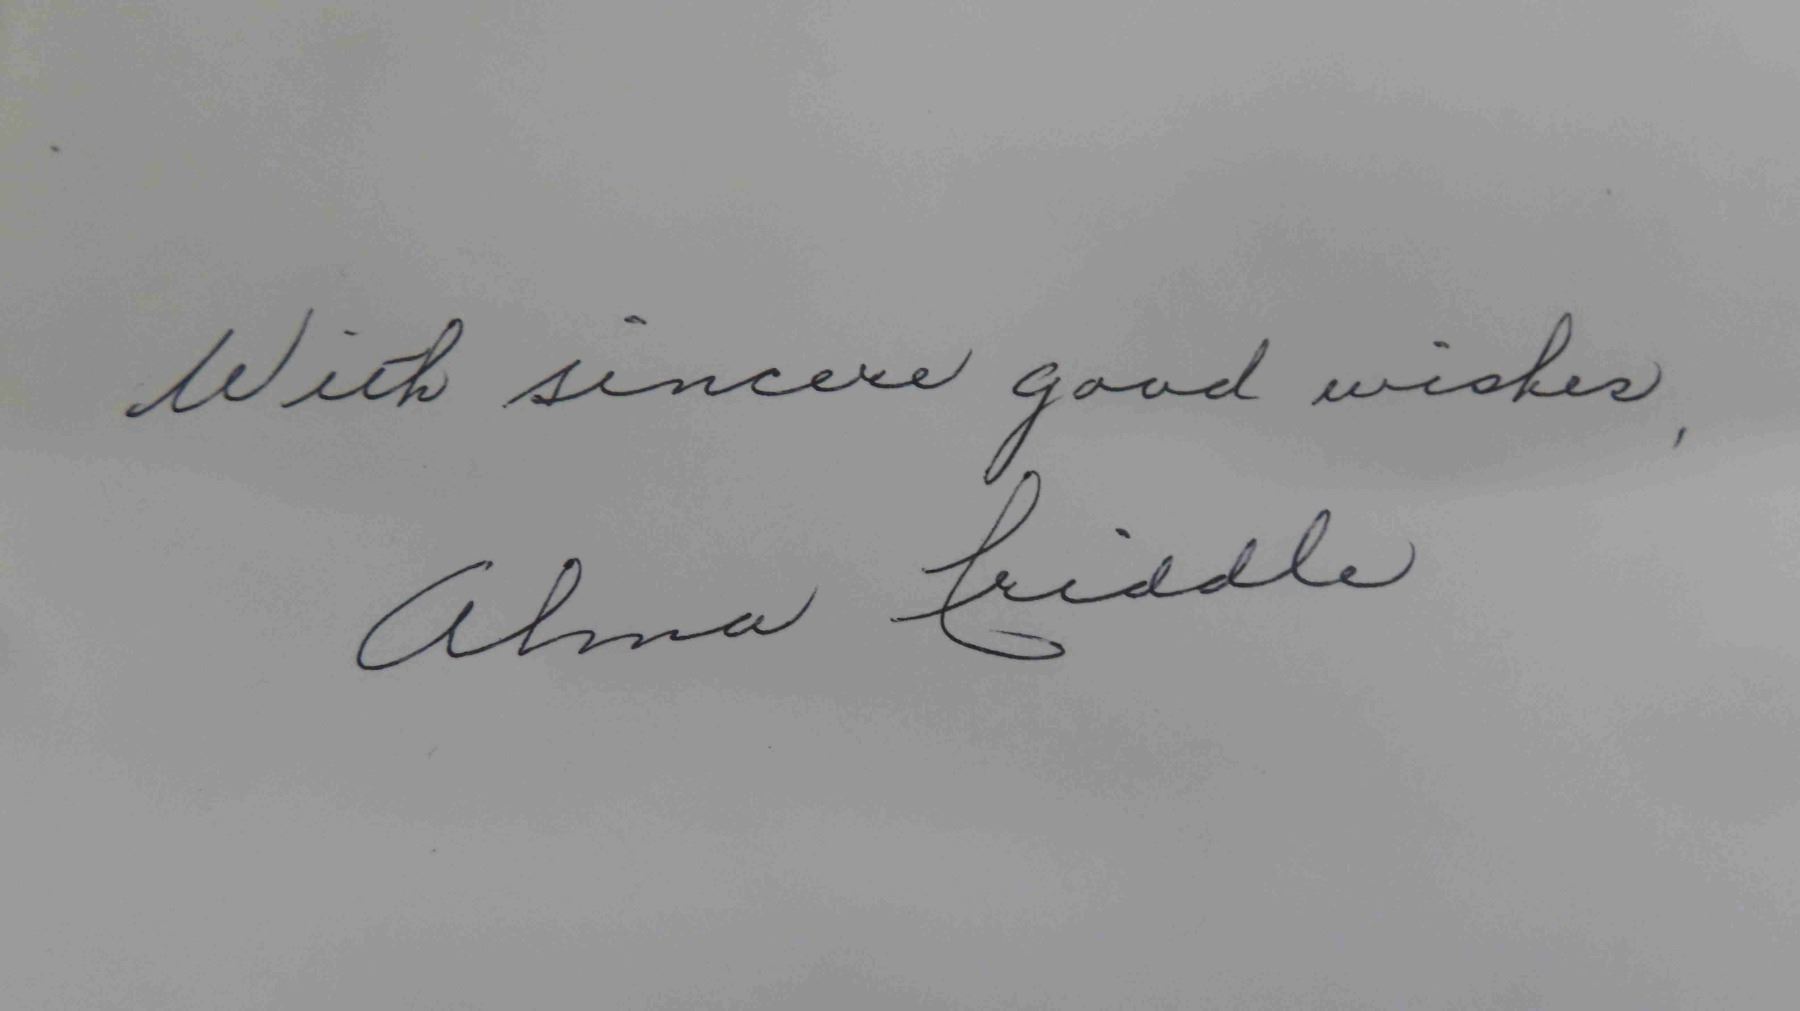 With sincere good wishes,
Alma Friddle